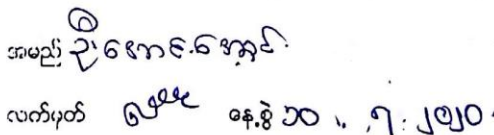 အမည် ဦးအောင်အောင်
လက်မှတ် နေ့စွဲ ၁၀ .. ၇ . ၂၀၂၀